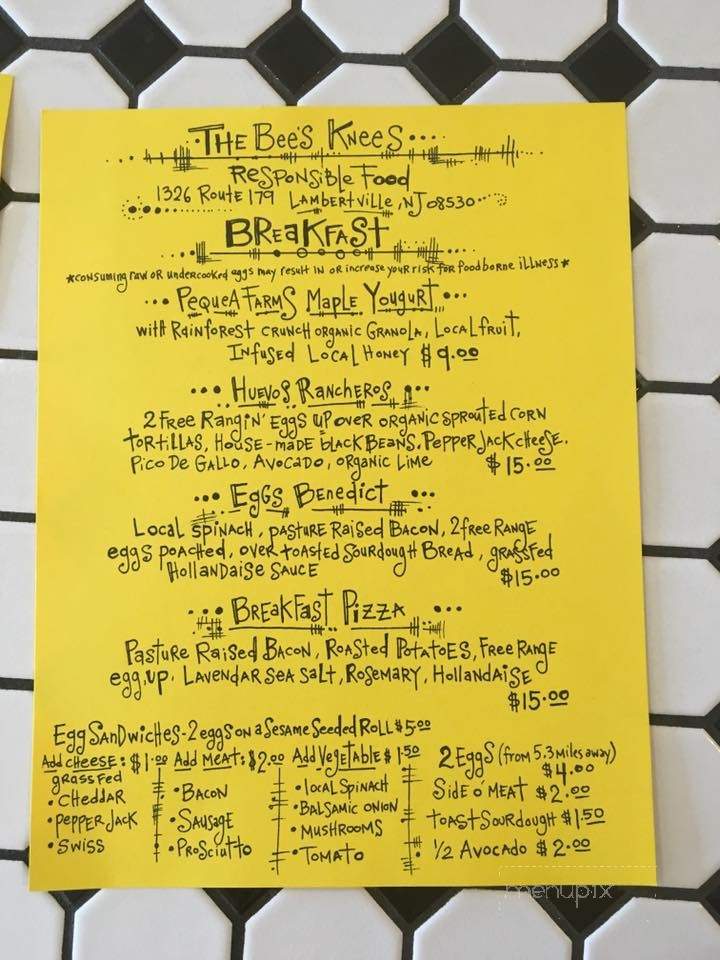 The Bee's Knees
Responsible Food
1326 Route 179 Lambertville, NJ 08530
Breakfast
*consuming raw or undercooked eggs may result in or increase your risk for foodborne illness*
Pequea Farms Maple Yougurt
with Rainforest crunch organic Granola, Local fruit,
Infused Local Honey $9.00
Huevos Rancheros
2 Free Rangin' Eggs up over organic sprouted corn
tortillas, House-made black Beans, Pepper Jack cheese,
Pico De Gallo, Avocado, organic Lime $15.00
Eggs Benedict
Local spinach, pasture Raised Bacon, 2 free Range
eggs poached, over toasted Sourdough Bread, grassfed
Hollandaise sauce
$15.00
Breakfast Pizza
Pasture Raised Bacon, Roasted Potatoes, Free Range
egg, up, Lavendar sea salt, Rosemary, Hollandaise
$15.00
Egg Sandwiches - 2 eggs on a Sesame Seeded Roll $5.00
Add cheese: $1.00
grassfed
• Cheddar
• pepper Jack
• Swiss
Add Meat: $2.00
• Bacon
• Sausage
• Prosciutto
Add Vegetable $1.50
• local Spinach
• Balsamic onion
• Mushrooms
• Tomato
2 Eggs (from 5.3 miles away)
$4.00
Side o' Meat $2.00
toast Sourdough $1.50
1/2 Avocado $2.00
menupix